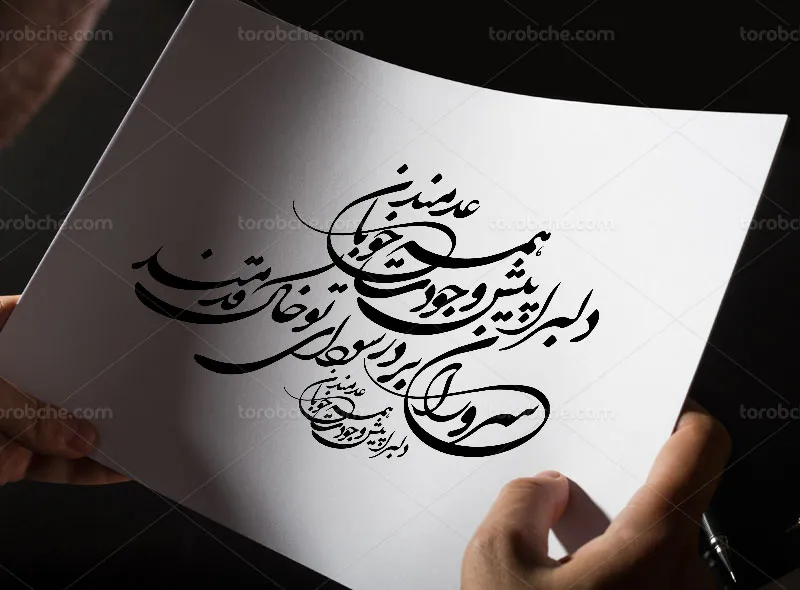 torobche.com torobche.com torobche.com torobche.com
دلبرا پیش وجودت همه خوبان عدمند
torobche.com torobche.com torobche.com torobche.com
سروران بر در سودای تو خاک قدمند
دلبرا پیش وجودت همه خوبان عدمند
torobche.com torobche.com torobche.com torobche.com